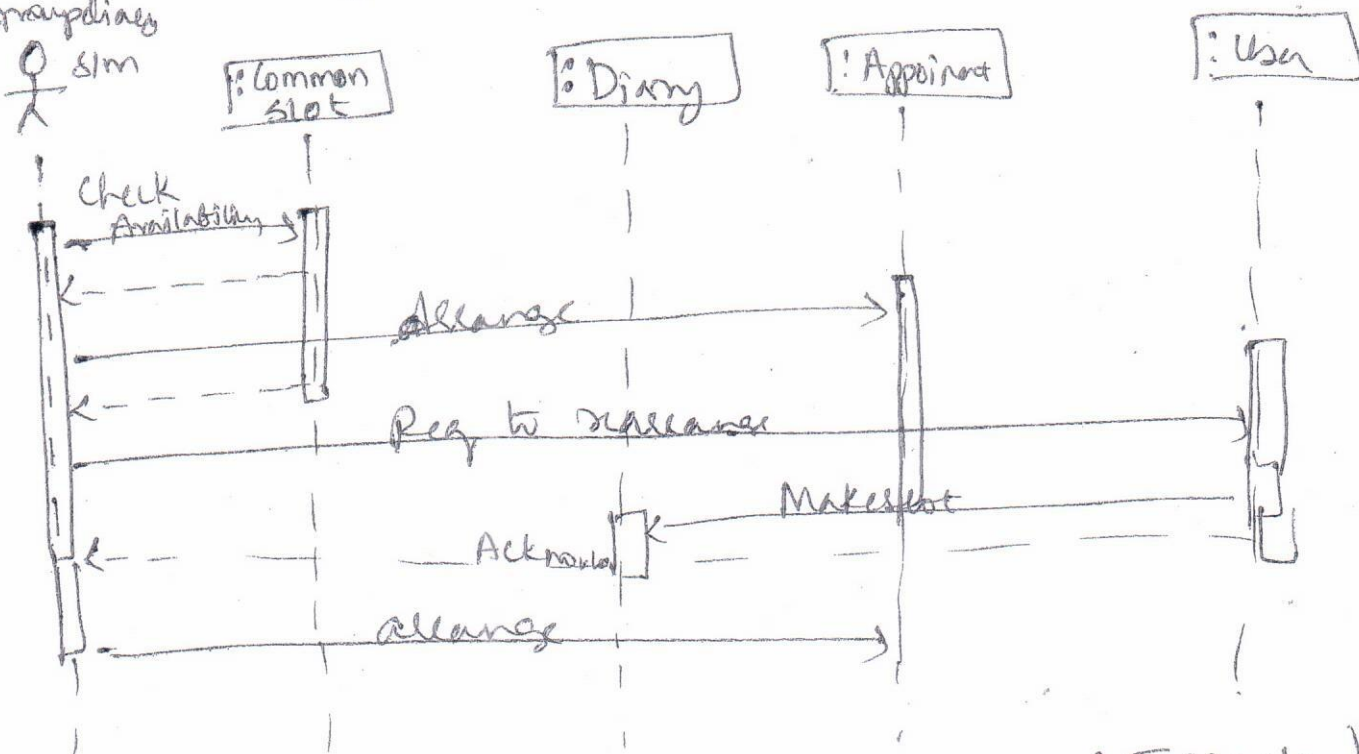 S/m
: Common
slot
: Diary
: Appoinet
: User
Check
Availability
Arrange
Req to rearrange
Makeslot
Acknowla
arrange